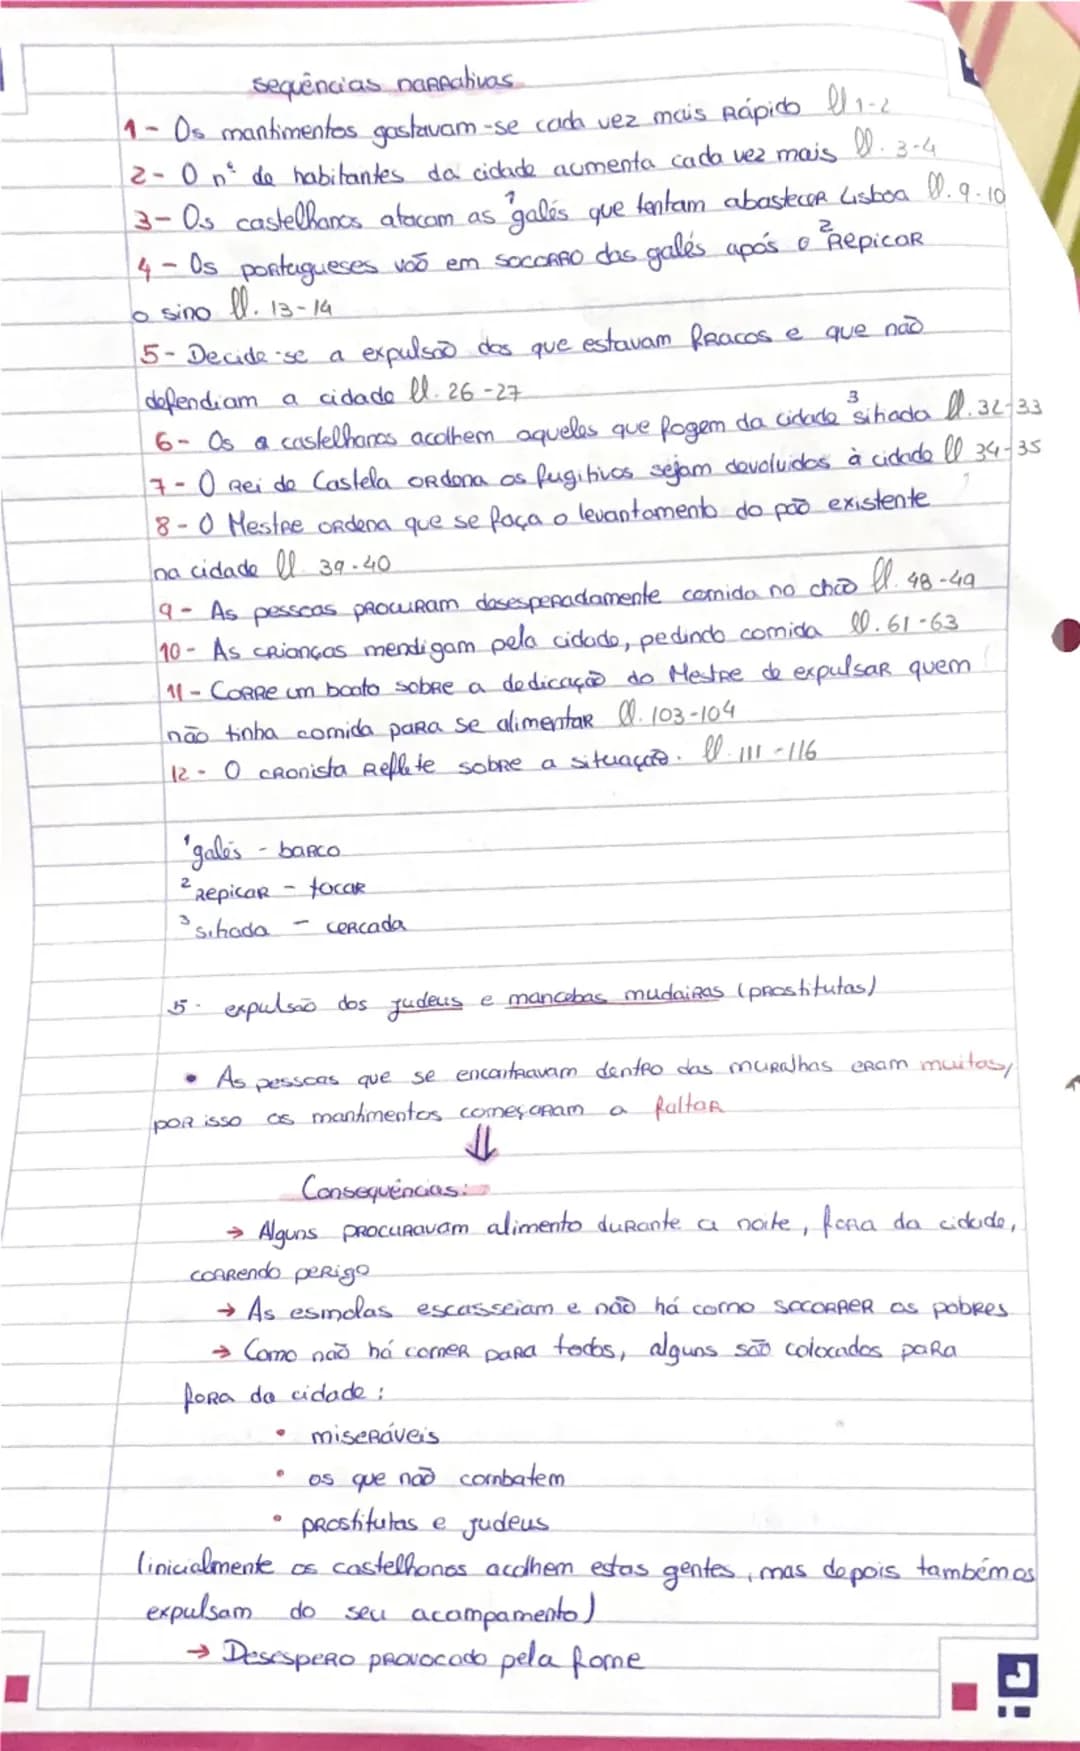 sequências narrativas
1- Os mantimentos gastavam-se cada vez mais Rápido ll 1-2
2- O nº de habitantes da cidade aumenta cada vez mais ll. 3-4
3- Os castelhanos atacam as ¹galés que tentam abastecer Lisboa ll. 9-10
4- Os portugueses vão em socorro das galés após o ²Repicar
o sino ll. 13-14
5- Decide-se a expulsão dos que estavam fracos e que não
defendiam a cidade ll. 26-27
6- Os a castelhanos acolhem aqueles que fogem da cidade ³sitiada ll. 32-33
7- O Rei de Castela ordena os fugitivos sejam devolvidos à cidade ll 34-35
8- O Mestre ordena que se faça o levantamento do pão existente
na cidade ll 39-40
9- As pessoas procuram desesperadamente comida no chão ll. 48-49
10- As crianças mendigam pela cidade, pedindo comida ll. 61-63
11- Corre um boato sobre a dedicação do Mestre de expulsar quem
não tinha comida para se alimentar ll. 103-104
12- O cronista reflete sobre a situação. ll. 111-116
¹galés - barco
²Repicar - tocar
³sitiada - cercada
5- expulsão dos judeus e mancebas mudairas (prostitutas)
• As pessoas que se encontravam dentro das muralhas eram muitas,
por isso os mantimentos começaram a faltar
⇓
Consequências:
→ Alguns procuravam alimento durante a noite, fora da cidade,
correndo perigo
→ As esmolas escasseiam e não há como socorrer os pobres
→ Como não há comer para todos, alguns são colocados para
fora da cidade:
• miseráveis
• os que não combatem
• prostitutas e judeus
(inicialmente os castelhanos acolhem estas gentes, mas depois também os
expulsam do seu acampamento)
→ Desespero provocado pela fome